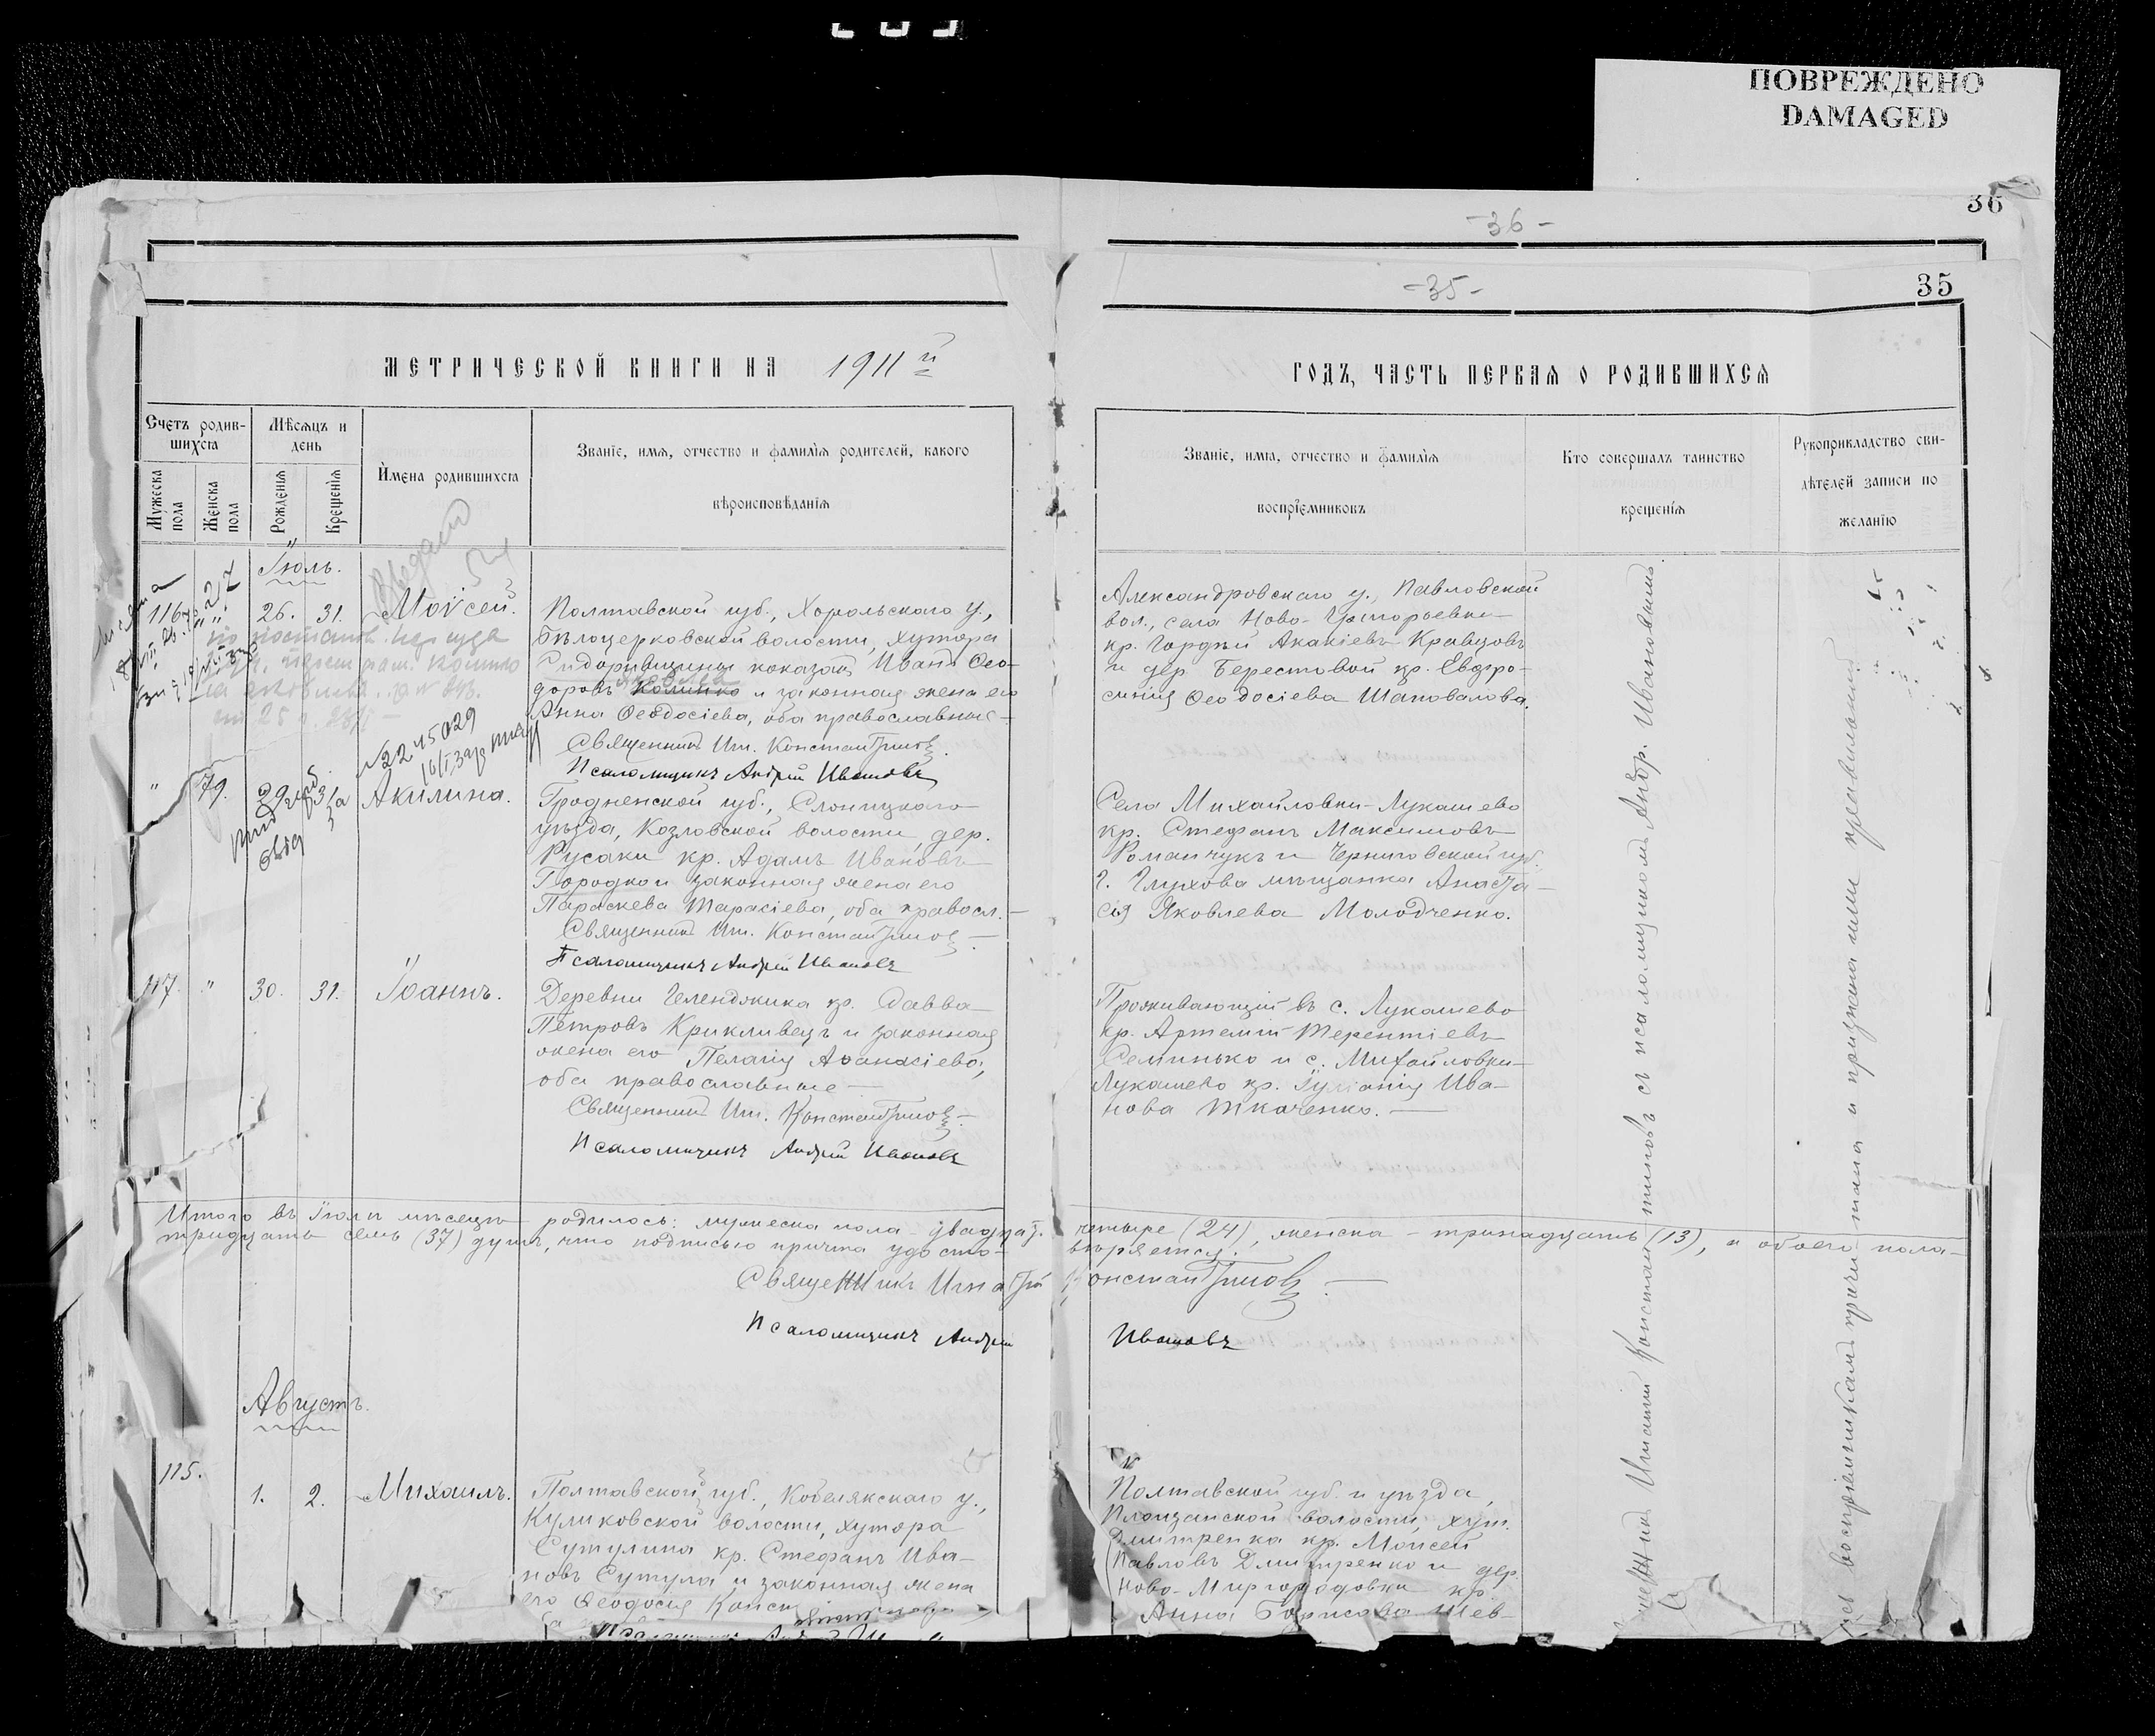 ПОВРЕЖДЕНО
DAMAGED
36
-36-
35
-35-
МЕТРИЧЕСКОЙ КНИГИ НА 1911й
ГОДЪ, ЧАСТЬ ПЕРВАЯ О РОДИВШИХСЯ
Счетъ родив-
шихся
Мѣсяцъ и
день
Мужеска
пола
Женска
пола
Рожденія
Крещенія
Имена родившихся
Званіе, имя, отчество и фамилія родителей, какого
вѣроисповѣданія
Званіе, имя, отчество и фамилія
воспріемниковъ
Кто совершалъ таинство
крещенія
Рукоприкладство сви-
дѣтелей записи по
желанію
Іюль.
116. " 26. 31. Моѵсей.
Полтавской губ., Хорольскаго у.,
Бѣлоцерковской волости, хутора
Сидорившины казакъ Иванъ Ѳео-
доровъ и законная жена его
Анна Ѳеодосіева, оба православные
Священникъ Иг. Константиновъ.
Псаломщикъ Андрей Ивановъ
Александровскаго у., Павловской
вол., села Ново-Григорьевки
кр. Гордѣй Акакіевъ Кравцовъ
и дер. Берестовой кр. Евфро-
синія Ѳеодосіева Шаповалова.
" 79. 29. 31. Акилина.
Гродненской губ., Слонимскаго
уѣзда, Козловской волости, дер.
Русаки кр. Адамъ Ивановъ
Городко и законная жена его
Параскева Тарасіева, оба правосл.
Священникъ Иг. Константиновъ
Псаломщикъ Андрей Ивановъ
Села Михайловки-Лукашево
кр. Стефанъ Максимовъ
Романчукъ и Черниговской губ.
г. Глухова мѣщанка Анаста-
сія Яковлева Молодченко.
117. " 30. 31. Іоаннъ.
Деревни Геленджика кр. Савва
Петровъ Крикливецъ и законная
жена его Пелагія Аѳанасіева,
оба православные
Священникъ Иг. Константиновъ.
Псаломщикъ Андрей Ивановъ
Проживающій въ с. Лукашево
кр. Артемій Терентіевъ
Семинько и с. Михайловки-
Лукашево кр. Іуліанія Ива-
нова Ткаченко.
Итого въ Іюлѣ мѣсяцѣ родилось: мужеска пола двадцат. четыре (24), женска - тринадцать (13), и обоего пола
тридцать семь (37) душъ, что подписью причта удосто-
вѣряется.
Священникъ Игнатій Константиновъ
Псаломщикъ Андрей Ивановъ
Августъ.
115. 1. 2. Михаилъ.
Полтавской губ., Кобелякскаго у.,
Куликовской волости, хутора
Сутулина кр. Стефанъ Ива-
новъ Сутула и законная жена
его Ѳеодосія
Полтавской губ. и уѣзда,
волости, хут.
Дмитренка кр. Моисей
Павловъ Дмитренко и дер.
Ново-Миргородовки кр.
Анна Борисова Шев-
Игнатій Константиновъ съ псаломщикомъ Андр. Ивановымъ.
воспріемникамъ причитана и признана ими правильной.